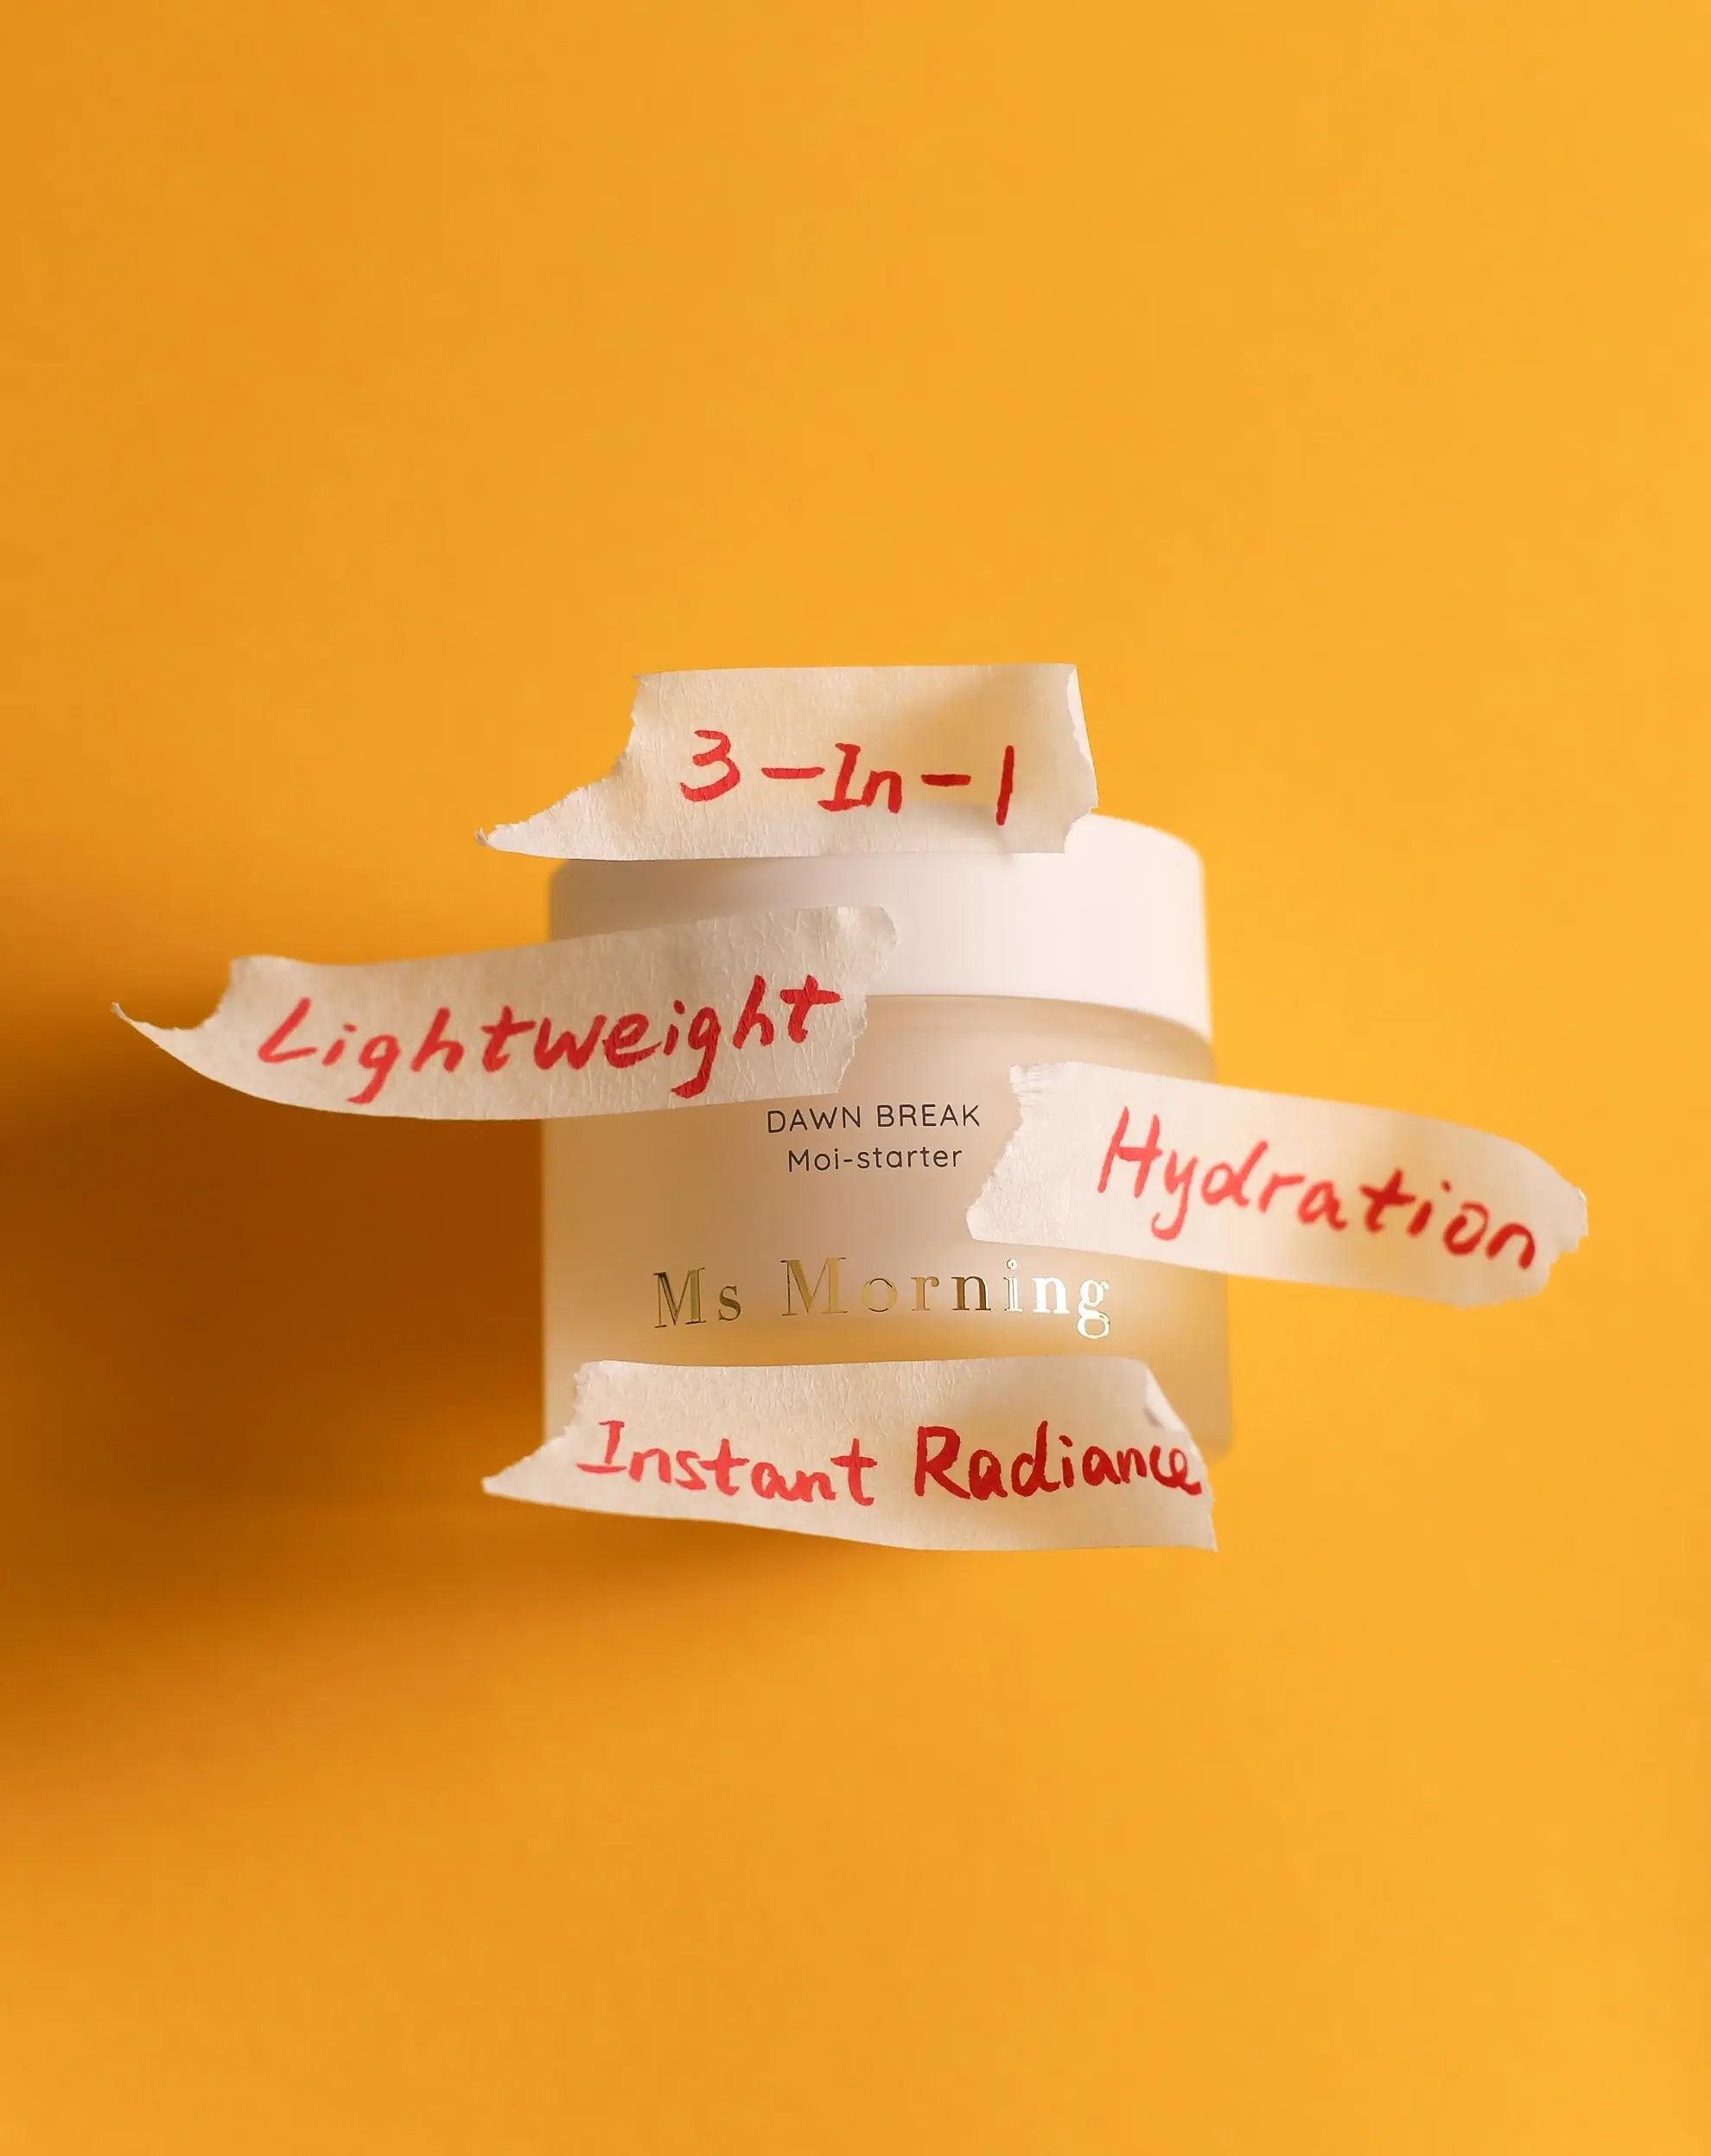 3-In-1
Lightweight
DAWN BREAK
Moi-starter
Hydration
Ms Morning
Instant Radiance